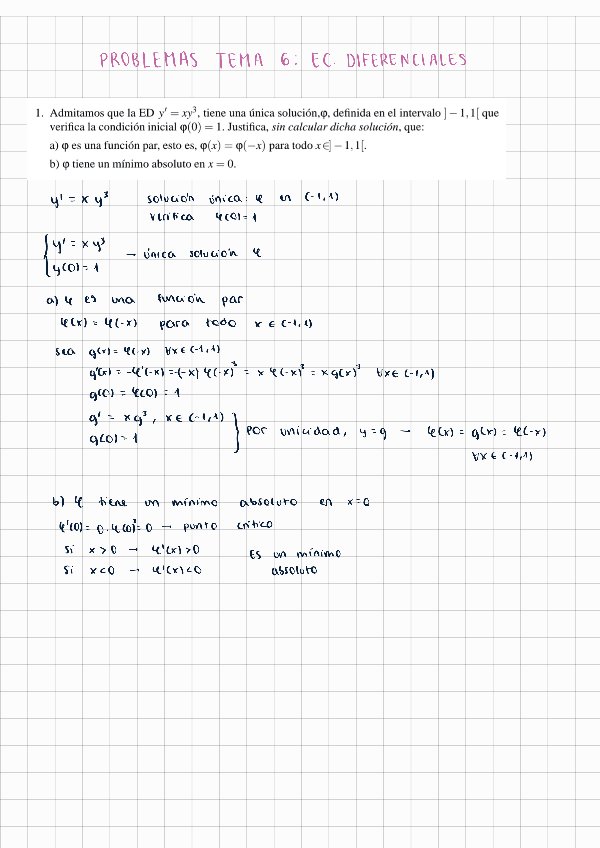 PROBLEMAS TEMA 6: EC. DIFERENCIALES
1. Admitamos que la ED y′ = xy³, tiene una única solución,φ, definida en el intervalo ] − 1, 1[ que
verifica la condición inicial φ(0) = 1. Justifica, sin calcular dicha solución, que:
a) φ es una función par, esto es, φ(x) = φ(−x) para todo x ∈] − 1, 1[.
b) φ tiene un mínimo absoluto en x = 0.
y' = x y³ solución única: φ en (-1,1)
verifica φ(0)=1
{ y' = x y³
y(0) = 1 → única solución φ
a) φ es una función par
φ(x) = φ(-x) para todo x ∈ (-1,1)
sea g(x) = φ(-x) ∀x ∈ (-1,1)
g'(x) = -φ'(-x) = -(-x) φ(-x)³ = x φ(-x)³ = x g(x)³ ∀x ∈ (-1,1)
g(0) = φ(0) = 1
g' = x g³, x ∈ (-1,1)
g(0) = 1 } por unicidad, y = g → φ(x) = g(x) = φ(-x)
∀x ∈ (-1,1)
b) φ tiene un mínimo absoluto en x=0
φ'(0) = 0·φ(0)³ = 0 → punto crítico
si x > 0 → φ'(x) > 0 Es un mínimo
si x < 0 → φ'(x) < 0 absoluto